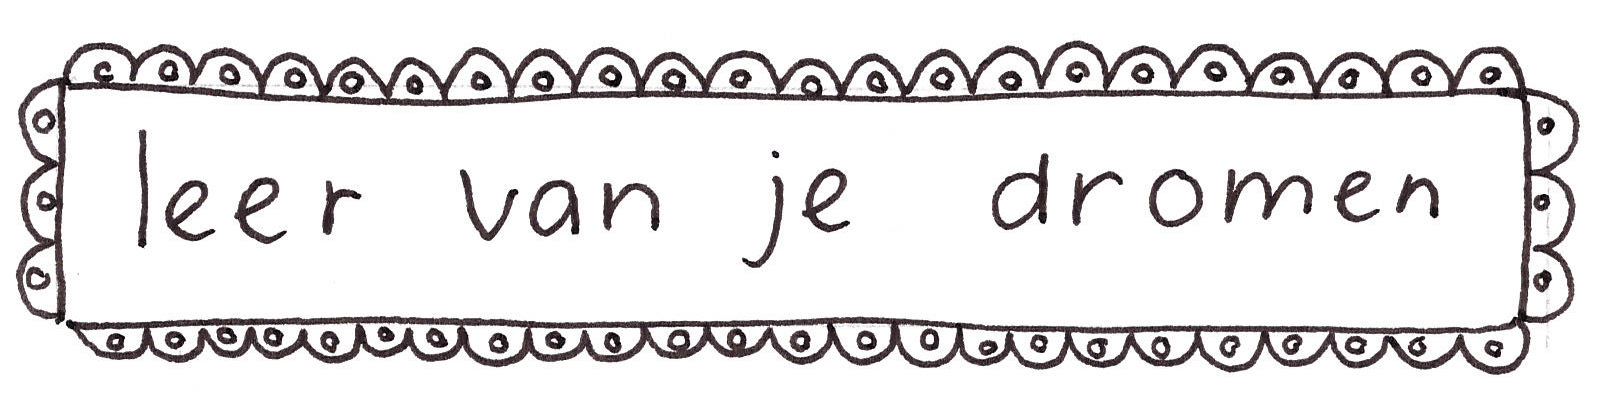 leer van je dromen